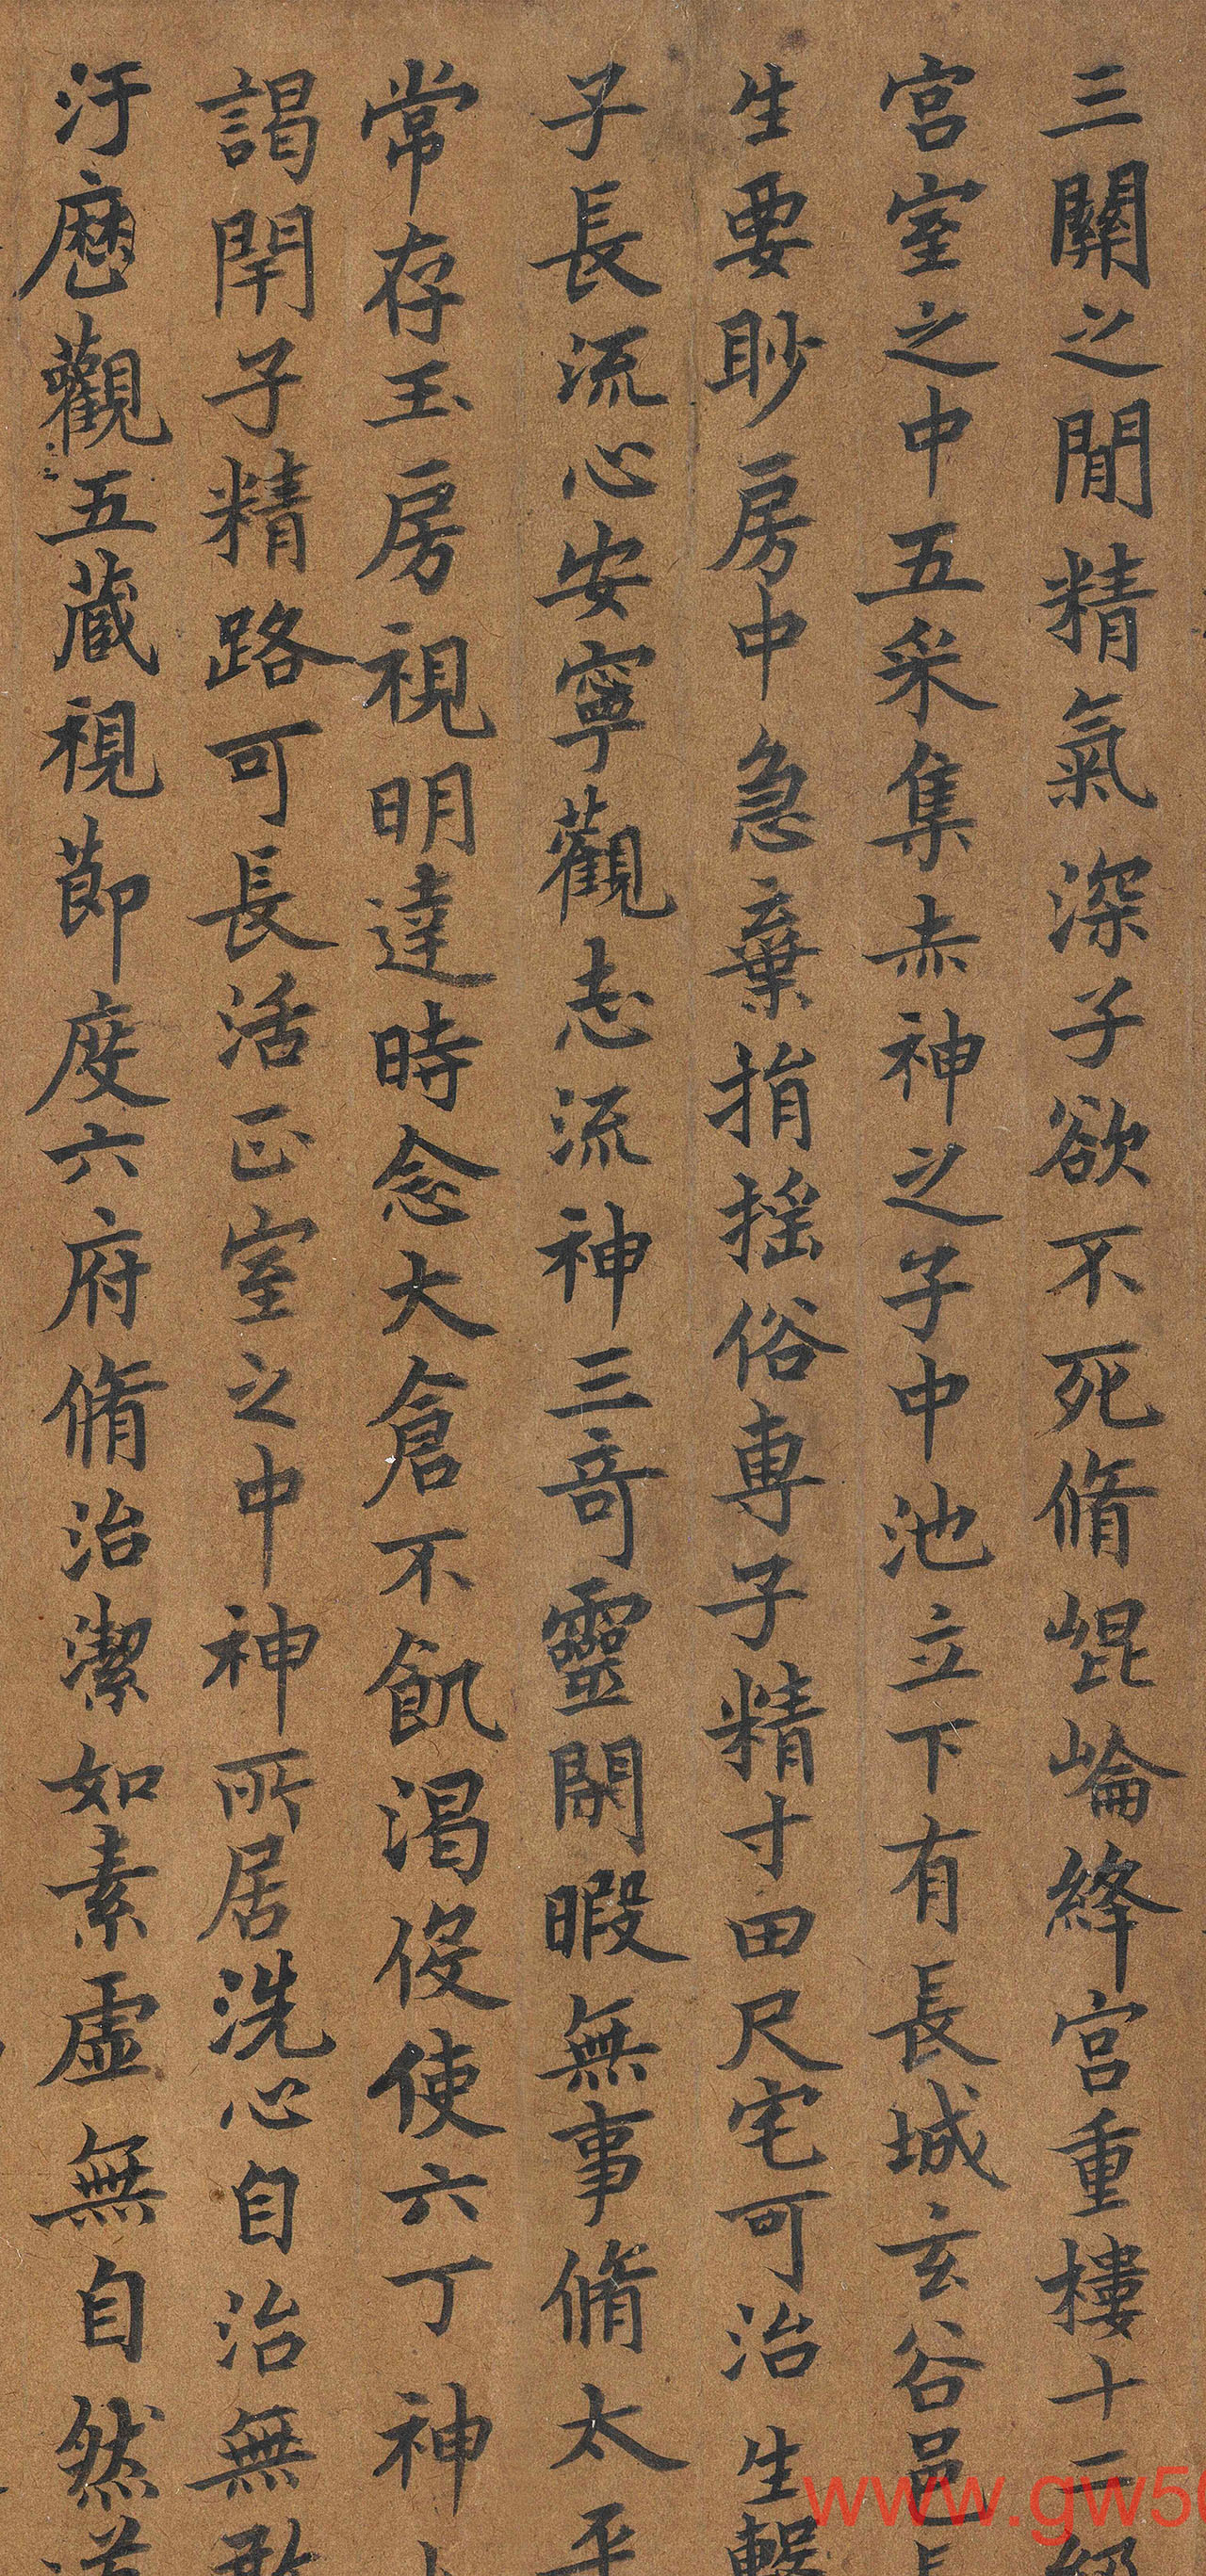 三關之間精氣深子欲不死脩崐崘絳宮重樓十二級
宮室之中五采集赤神之子中池立下有長城玄谷邑
生要眇房中急棄捐搖俗専子精寸田尺宅可治生
子長流心安寧觀志流神三奇靈閑暇無事脩太平
常存玉房視明達時念大倉不飢渴伇使六丁神
謁閇子精路可長活正室之中神所居洗心自治無敢
汙歷觀五蔵視莭度六府脩治潔如素虛無自然道
www.gw50